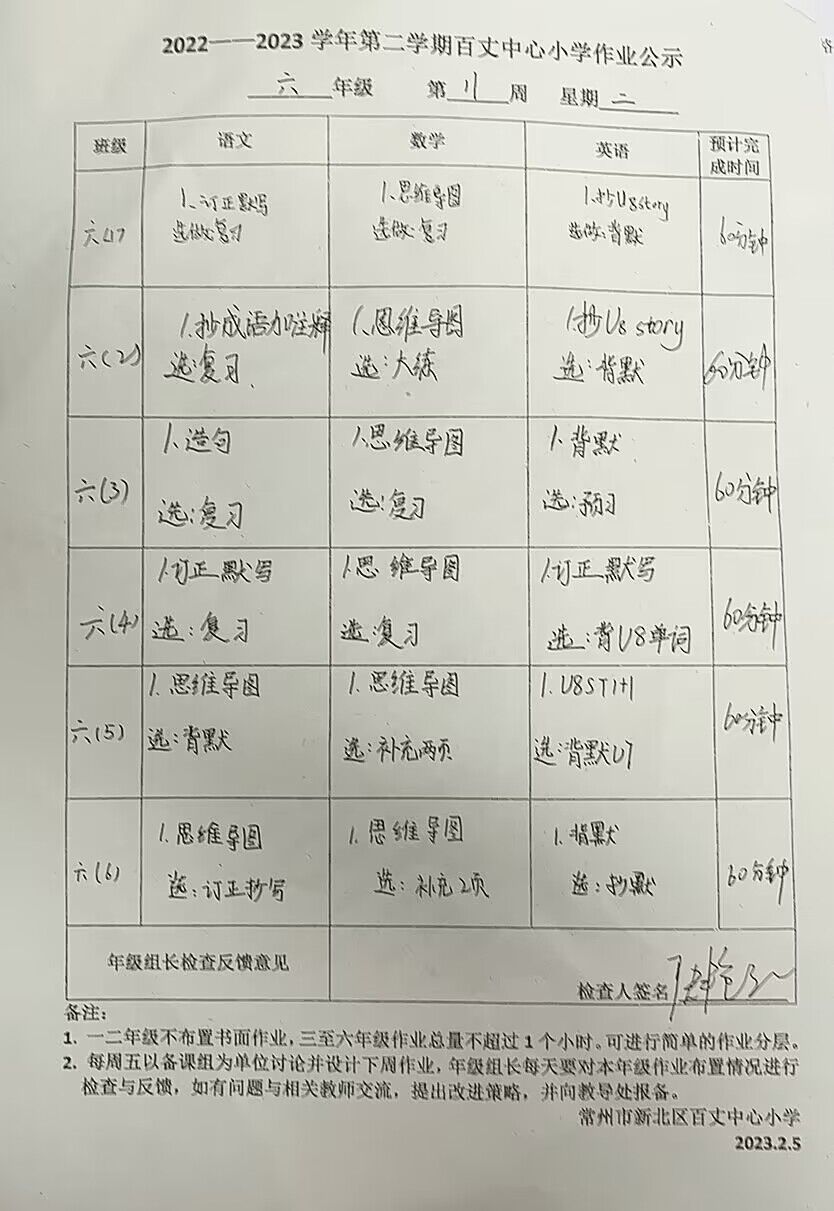 2022——2023 学年第二学期百丈中心小学作业公示
六 年级 第 11 周 星期 二
班级 语文 数学 英语 预计完成时间
六(1) 1.订正默写 1.思维导图 1.抄U8story 60分钟
选做:复习 选做:复习 选做:背默
六(2) 1.抄成语加注释 1.思维导图 1.抄U8 story 60分钟
选:复习 选:大练 选:背默
六(3) 1.造句 1.思维导图 1.背默 60分钟
选:复习 选:复习 选:预习
六(4) 1.订正默写 1.思维导图 1.订正默写 60分钟
选:复习 选:复习 选:背U8单词
六(5) 1.思维导图 1.思维导图 1.U8ST1+1 60分钟
选:背默 选:补充两页 选:背默U7
六(6) 1.思维导图 1.思维导图 1.背默 60分钟
选:订正抄写 选:补充2页 选:抄默
年级组长检查反馈意见
检查人签名
备注:
1. 一二年级不布置书面作业,三至六年级作业总量不超过 1 个小时。可进行简单的作业分层。
2. 每周五以备课组为单位讨论并设计下周作业,年级组长每天要对本年级作业布置情况进行
检查与反馈,如有问题与相关教师交流,提出改进策略,并向教导处报备。
常州市新北区百丈中心小学
2023.2.5